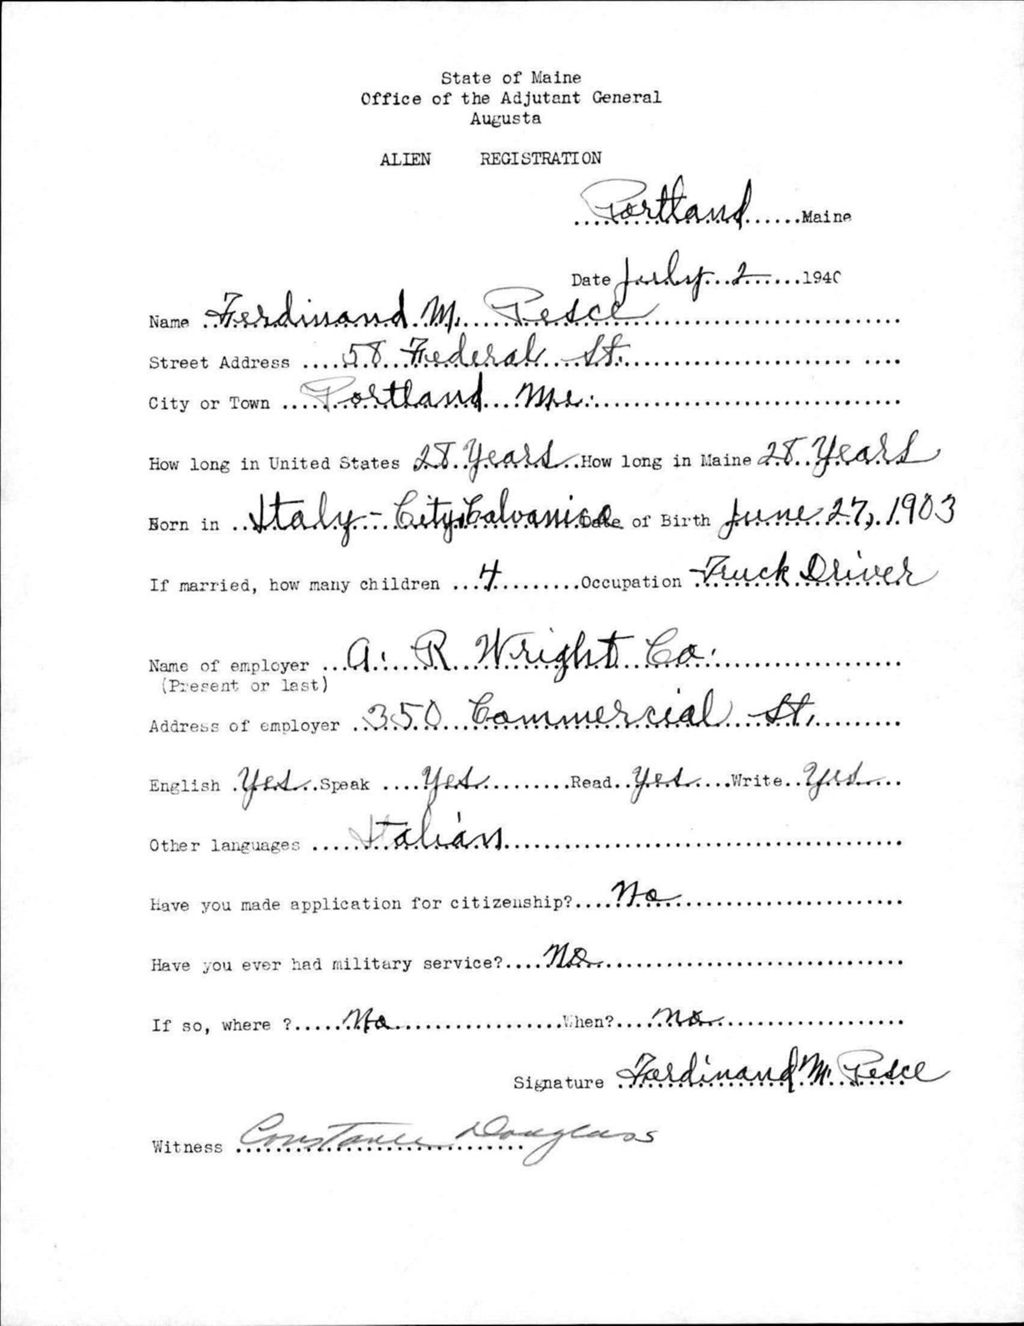 State of Maine
Office of the Adjutant General
Augusta
ALIEN REGISTRATION
Portland Maine
Date July 2 1940
Name Ferdinand M. Pesce
Street Address 58 Federal St.
City or Town Portland Me.
How long in United States 28 Years How long in Maine 28 Years
Born in Italy - City Calvanisa Date of Birth June 27, 1903
If married, how many children 4 Occupation Truck Driver
Name of employer A. R. Wright Co.
(Present or last)
Address of employer 350 Commercial St.
English Yes Speak Yes Read Yes Write Yes
Other languages Italian
Have you made application for citizenship? No
Have you ever had military service? No
If so, where ? No When? No
Signature Ferdinand M. Pesce
Witness Constance Douglass